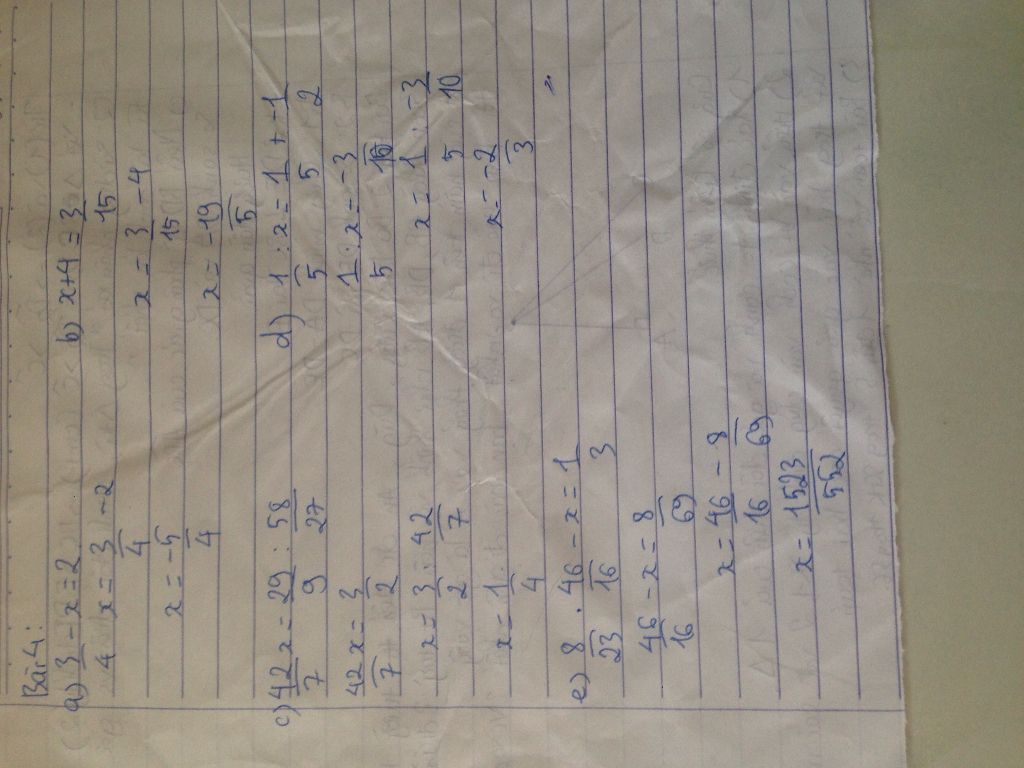 Bài 4:
a) 3/4 - x = 2
x = 3/4 - 2
x = -5/4
b) x + 4 = 3/15
x = 3/15 - 4
x = -19/5
c) 42/7 x = 29/9 : 58/27
42/7 x = 3/2
x = 3/2 : 42/7
x = 1/4
d) 1/5 : x = 1/5 + -1/2
1/5 : x = -3/10
x = 1/5 : -3/10
x = -2/3
e) 8/23 . 46/16 - x = 1/3
46/16 - x = 8/69
x = 46/16 - 8/69
x = 1523/552